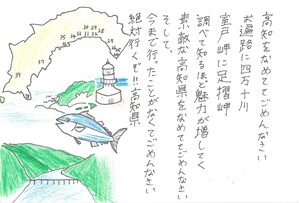 高知をなめててごめんなさい
お遍路に四万十川
室戸岬に足摺岬
調べて知るほど魅力が増してく
素敵な高知県をなめててごめんなさい
そして、
今まで行ったことがなくてごめんなさい
絶対行くぞ!!高知県